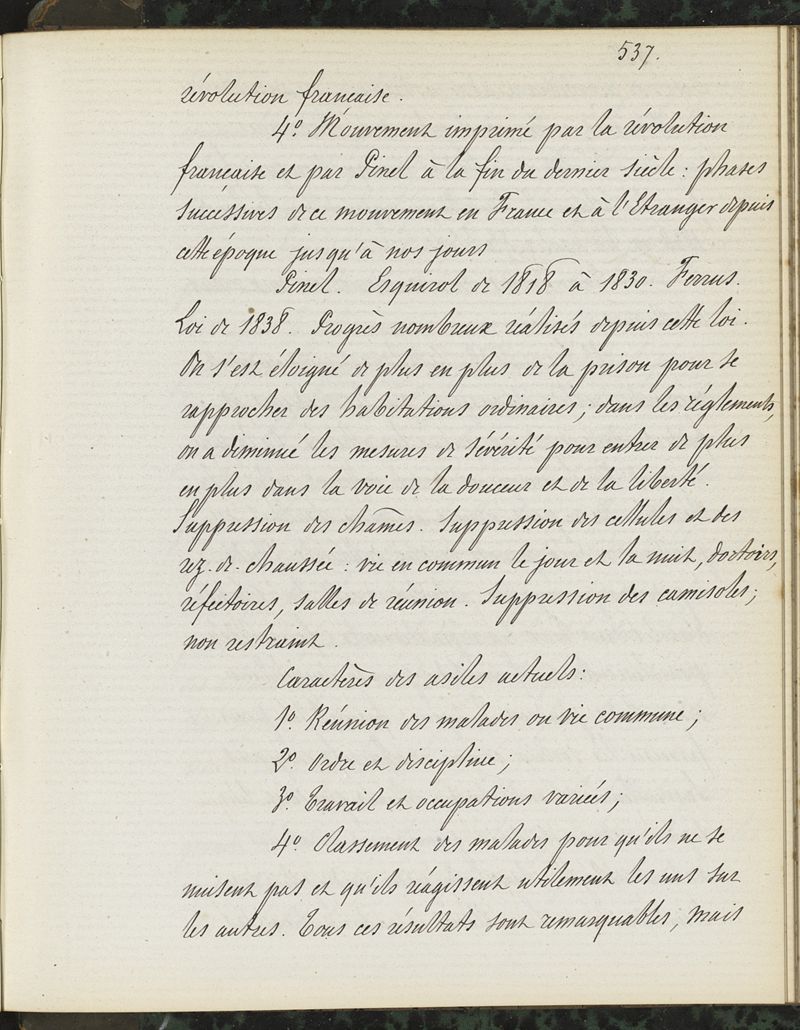 537.
révolution française.
4º. Mouvement imprimé par la révolution
française et par Pinel à la fin du dernier siècle : phases
successives de ce mouvement en France et à l'Etranger depuis
cette époque jusqu'à nos jours
Pinel. Esquirol de 1818 à 1830. Ferrus.
Loi de 1838. Progrès nombreux réalisés depuis cette loi.
On s'est éloigné de plus en plus de la prison pour se
rapprocher des habitations ordinaires ; dans les réglements,
on a diminué les mesures de sévérité pour entrer de plus
en plus dans la voie de la douceur et de la liberté.
Suppression des chaînes. Suppression des cellules et des
rez-de-chaussée : vie en commun le jour et la nuit, dortoirs,
réfectoires, salles de réunion. Suppression des camisoles ;
non restraint.
Caractères des asiles actuels :
1º. Réunion des malades ou vie commune ;
2º. Ordre et discipline ;
3º. Travail et occupations variées ;
4º. Classement des malades pour qu'ils ne se
nuisent pas et qu'ils réagissent utilement les uns sur
les autres. Tous ces résultats sont remarquables, mais